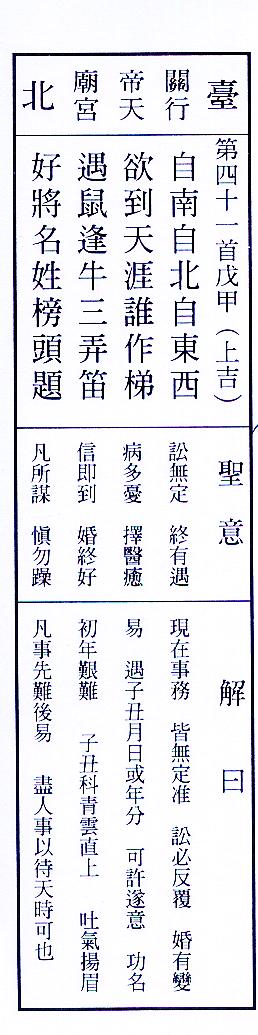 臺北
關帝廟
行天宮
第四十一首戊甲（上吉）
自南自北自東西
欲到天涯誰作梯
遇鼠逢牛三弄笛
好將名姓榜頭題
聖意
訟無定 終有遇
病多憂 擇醫癒
信即到 婚終好
凡所謀 慎勿躁
解曰
現在事務 皆無定准 訟必反覆 婚有變
易 遇子丑月日或年分 可許遂意 功名
初年艱難 子丑科青雲直上 吐氣揚眉
凡事先難後易 盡人事以待天時可也